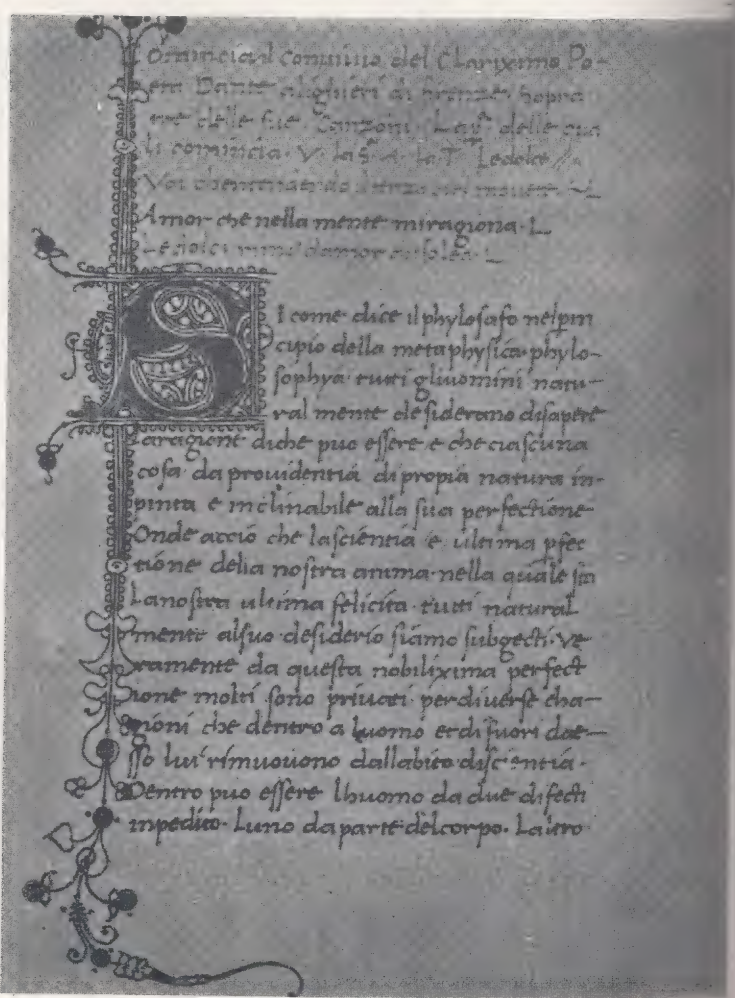 Omincia il conuiuio del Clariximo Po-
eta Dante alighieri di firenze. Sopra
tre delle sue Canzoni. La pª delle qua
li comincia. V. la sª. A. la Tª Ledolce
Voi chentendendo il terzo ciel mouete. L
Amor che nella mente miragiona. L
Ledolci rime damor chisolea. L
SI come dice il phylosafo nelprin
cipio della metaphysica. phylo-
sophya. tutti gliuomini natu-
ral mente desiderano disapere
Laragione diche puo essere e che ciascuna
cosa da prouidentia di propia natura in-
pinta e inclinabile alla sua perfectione
Onde acció che lascientia e. ultima pfec
tione della nostra anima. nella quale sta
Lanostra ultima felicita. tutti natural
mente alsuo desiderio siamo subgecti. ve
ramente da questa nobilixima perfect
ione molti sono priuati. perdiuerse cha-
gioni che dentro a luomo et difuori dae-
sso lui rimuouono dallabito discientia.
Dentro puo essere lhuomo da due difecti
inpedito. Luno daparte delcorpo. Laltro